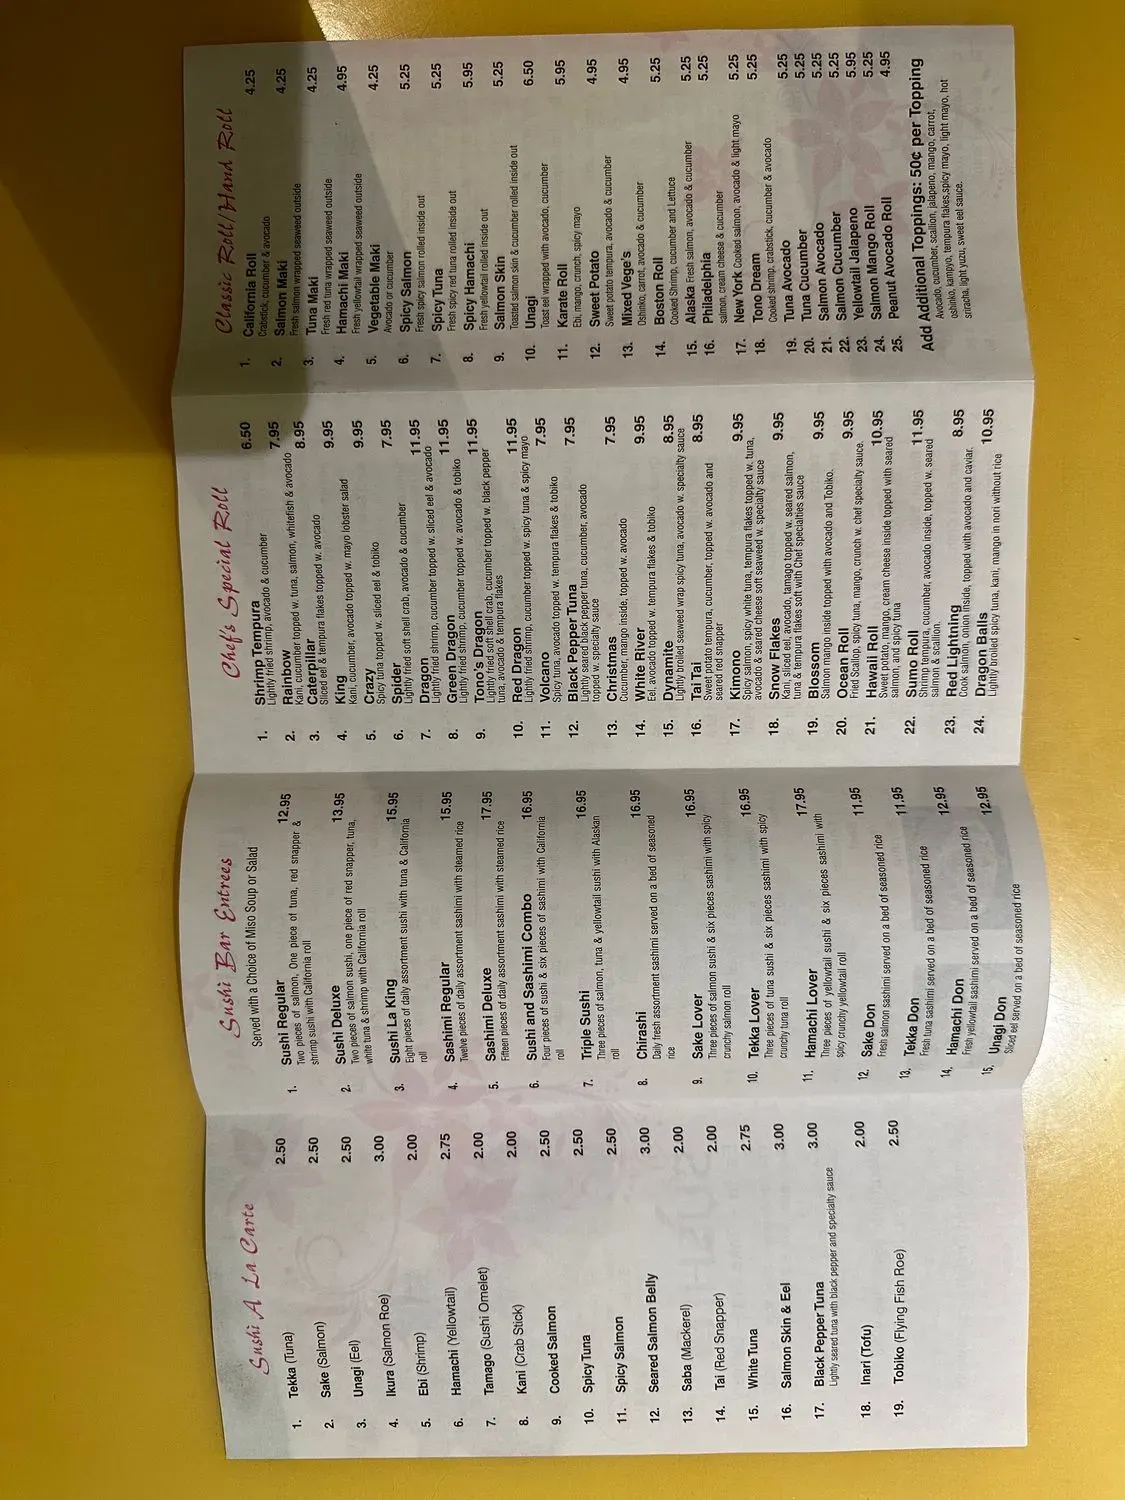 Sushi A La Carte
1. Tekka (Tuna) 2.50
2. Sake (Salmon) 2.50
3. Unagi (Eel) 2.50
4. Ikura (Salmon Roe) 3.00
5. Ebi (Shrimp) 2.00
6. Hamachi (Yellowtail) 2.75
7. Tamago (Sushi Omelet) 2.00
8. Kani (Crab Stick) 2.00
9. Cooked Salmon 2.50
10. Spicy Tuna 2.50
11. Spicy Salmon 2.50
12. Seared Salmon Belly 3.00
13. Saba (Mackerel) 2.00
14. Tai (Red Snapper) 2.00
15. White Tuna 2.75
16. Salmon Skin & Eel 3.00
17. Black Pepper Tuna 3.00
Lightly seared tuna with black pepper and specialty sauce
18. Inari (Tofu) 2.00
19. Tobiko (Flying Fish Roe) 2.50
Sushi Bar Entrees
Served with a Choice of Miso Soup or Salad
1. Sushi Regular 12.95
Two pieces of salmon, One piece of tuna, red snapper &
shrimp sushi with California roll
2. Sushi Deluxe 13.95
Two pieces of salmon sushi, one piece of red snapper, tuna,
white tuna & shrimp with California roll
3. Sushi La King 15.95
Eight pieces of daily assortment sushi with tuna & California
roll
4. Sashimi Regular 15.95
Twelve pieces of daily assortment sashimi with steamed rice
5. Sashimi Deluxe 17.95
Fifteen pieces of daily assortment sashimi with steamed rice
6. Sushi and Sashimi Combo 16.95
Four pieces of sushi & six pieces of sashimi with California
roll
7. Triple Sushi 16.95
Three pieces of salmon, tuna & yellowtail sushi with Alaskan
roll
8. Chirashi 16.95
Daily fresh assortment sashimi served on a bed of seasoned
rice
9. Sake Lover 16.95
Three pieces of salmon sushi & six pieces sashimi with spicy
crunchy salmon roll
10. Tekka Lover 16.95
Three pieces of tuna sushi & six pieces sashimi with spicy
crunchy tuna roll
11. Hamachi Lover 17.95
Three pieces of yellowtail sushi & six pieces sashimi with
spicy crunchy yellowtail roll
12. Sake Don 11.95
Fresh salmon sashimi served on a bed of seasoned rice
13. Tekka Don 11.95
Fresh tuna sashimi served on a bed of seasoned rice
14. Hamachi Don 12.95
Fresh yellowtail sashimi served on a bed of seasoned rice
15. Unagi Don 12.95
Sliced eel served on a bed of seasoned rice
Chef's Special Roll
1. Shrimp Tempura 6.50
Lightly fried shrimp, avocado & cucumber
2. Rainbow 7.95
Kani, cucumber topped w. tuna, salmon, whitefish & avocado
3. Caterpillar 8.95
Sliced eel & tempura flakes topped w. avocado
4. King 9.95
Kani, cucumber, avocado topped w. mayo lobster salad
5. Crazy 9.95
Spicy tuna topped w. sliced eel & tobiko
6. Spider 7.95
Lightly fried soft shell crab, avocado & cucumber
7. Dragon 11.95
Lightly fried shrimp, cucumber topped w. sliced eel & avocado
8. Green Dragon 11.95
Lightly fried shrimp, cucumber topped w. avocado & tobiko
9. Tono's Dragon 11.95
Lightly fried soft shell crab, cucumber topped w. black pepper
tuna, avocado & tempura flakes
10. Red Dragon 11.95
Lightly fried shrimp, cucumber topped w. spicy tuna & spicy mayo
11. Volcano 7.95
Spicy tuna, avocado topped w. tempura flakes & tobiko
12. Black Pepper Tuna 7.95
Lightly seared black pepper tuna, cucumber, avocado
topped w. specialty sauce
13. Christmas 7.95
Cucumber, mango inside, topped w. avocado
14. White River 9.95
Eel, avocado topped w. tempura flakes & tobiko
15. Dynamite 8.95
Lightly broiled seaweed wrap spicy tuna, avocado w. specialty sauce
16. Tai Tai 8.95
Sweet potato tempura, cucumber, topped w. avocado and
seared red snapper
17. Kimono 9.95
Spicy salmon, spicy white tuna, tempura flakes topped w. tuna,
avocado & seared cheese soft seaweed w. specialty sauce
18. Snow Flakes 9.95
Kani, sliced eel, avocado, tamago topped w. seared salmon,
tuna & tempura flakes soft with Chef specialties sauce
19. Blossom 9.95
Salmon mango inside topped with avocado and Tobiko.
20. Ocean Roll 9.95
Fried Scallop, spicy tuna, mango, crunch w. chef specialty sauce.
21. Hawaii Roll 10.95
Sweet potato, mango, cream cheese inside topped with seared
salmon and spicy tuna
22. Sumo Roll 11.95
Shrimp tempura, cucumber, avocado inside, topped w. seared
salmon & scallion.
23. Red Lightning 8.95
Cook salmon, onion inside, topped with avocado and caviar.
24. Dragon Balls 10.95
Lightly broiled spicy tuna, kani, mango in nori without rice
Classic Roll/Hand Roll
1. California Roll 4.25
Crabstick, cucumber & avocado
2. Salmon Maki 4.25
Fresh salmon wrapped seaweed outside
3. Tuna Maki 4.25
Fresh red tuna wrapped seaweed outside
4. Hamachi Maki 4.95
Fresh yellowtail wrapped seaweed outside
5. Vegetable Maki 4.25
Avocado or cucumber
6. Spicy Salmon 5.25
Fresh spicy salmon rolled inside out
7. Spicy Tuna 5.25
Fresh spicy red tuna rolled inside out
8. Spicy Hamachi 5.95
Fresh yellowtail rolled inside out
9. Salmon Skin 5.25
Toasted salmon skin & cucumber rolled inside out
10. Unagi 6.50
Toast eel wrapped with avocado, cucumber
11. Karate Roll 5.95
Ebi, mango, crunch, spicy mayo
12. Sweet Potato 4.95
Sweet potato tempura, avocado & cucumber
13. Mixed Vege's 4.95
Oshinko, carrot, avocado & cucumber
14. Boston Roll 5.25
Cooked Shrimp, cucumber and Lettuce
15. Alaska Fresh salmon, avocado & cucumber 5.25
16. Philadelphia 5.25
salmon, cream cheese & cucumber
17. New York Cooked salmon, avocado & light mayo 5.25
18. Tono Dream 5.25
Cooked shrimp, crabstick, cucumber & avocado
19. Tuna Avocado 5.25
20. Tuna Cucumber 5.25
21. Salmon Avocado 5.25
22. Salmon Cucumber 5.25
23. Yellowtail Jalapeno 5.95
24. Salmon Mango Roll 5.25
25. Peanut Avocado Roll 4.95
Add Additional Toppings: 50¢ per Topping
Avocado, cucumber, scallion, jalapeno, mango, carrot,
oshinko, kampyo, tempura flakes,spicy mayo, light mayo, hot
sriracha, light yuzu, sweet eel sauce.